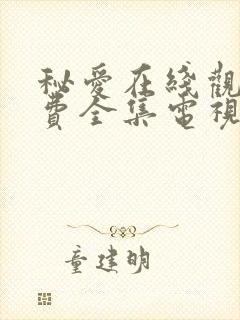 秘愛在綫觀
費全集電視
童建明